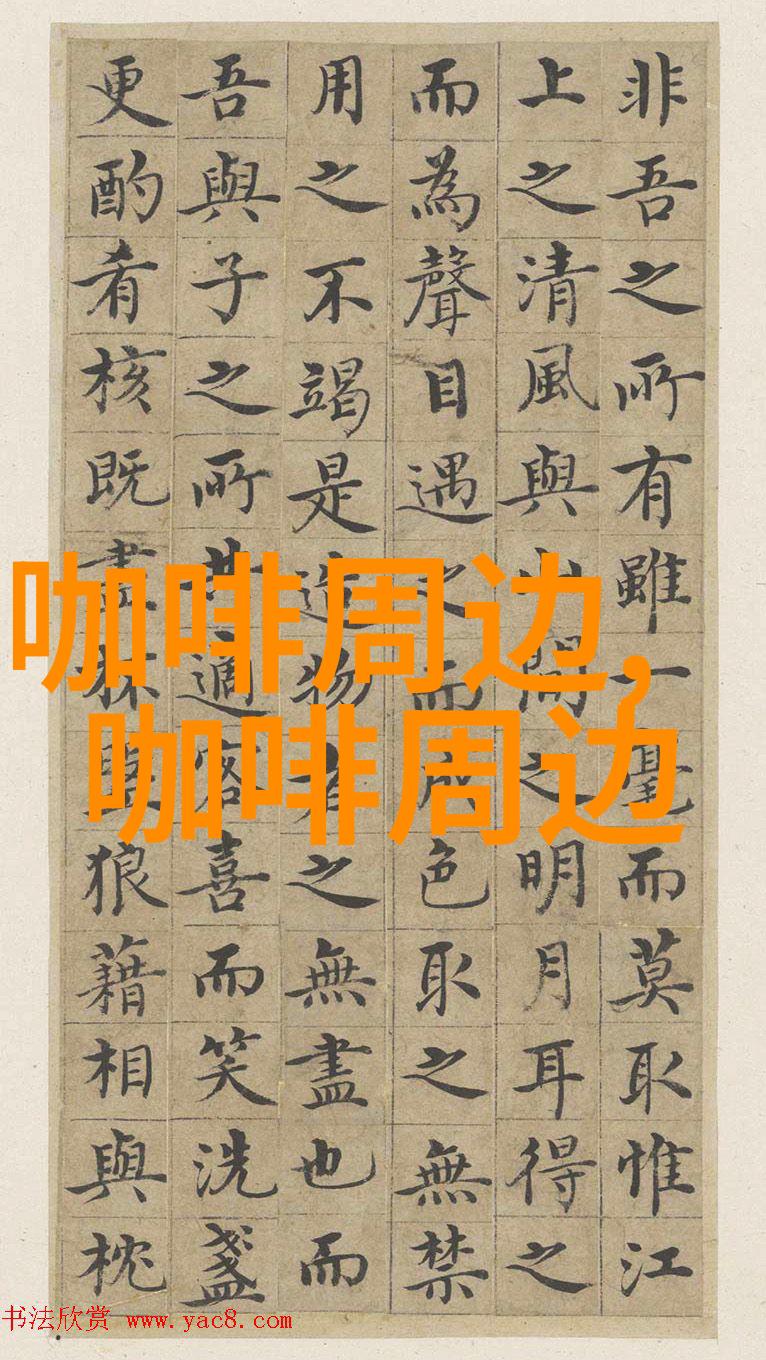 非吾之所有雖一毫而莫取惟江
上之清風與山間之明月耳得之
而為聲目遇之而成色取之無禁
用之不竭是造物者之無盡也而
吾與子之所共適客喜而笑洗盞
更酌肴核既盡杯盤狼藉相與枕
咖啡周边,
咖啡周边
书法欣赏 www.yac8.com